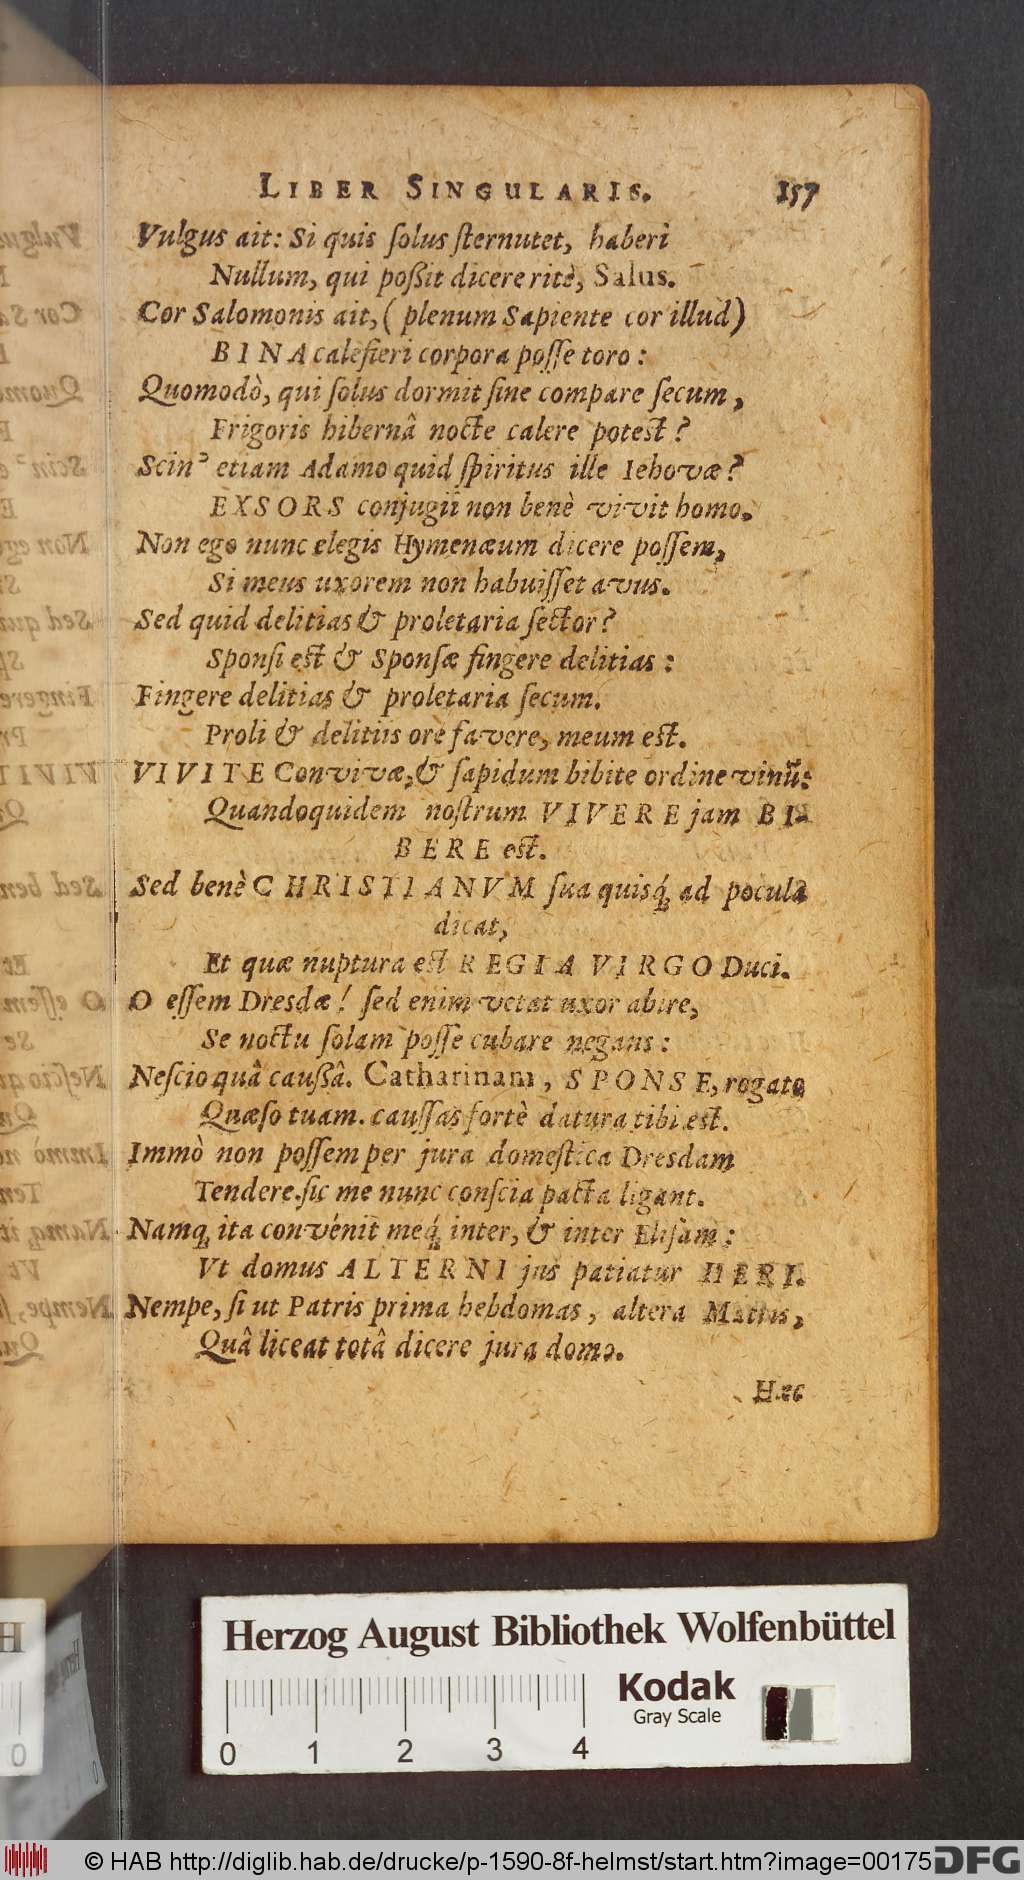 LIBER SINGULARIS. 157
Vulgus ait: Si quis ſolus ſternutet, haberi
Nullum, qui poßit dicere ritè, Salus.
Cor Salomonis ait, ( plenum Sapiente cor illud)
BINA calefieri corpora poſſe toro:
Quomodò, qui ſolus dormit ſine compare ſecum,
Frigoris hibernâ nocte calere potest?
Scin' etiam Adamo quid ſpiritus ille Iehovæ?
EXSORS conjugii non benè vivit homo.
Non ego nunc elegis Hymenæum dicere poſſem,
Si meus uxorem non habuiſſet avus.
Sed quid delitias & proletaria ſector?
Sponſi est & Sponſæ fingere delitias:
Fingere delitias & proletaria ſecum.
Proli & delitiis ore favere, meum est.
VIVITE Convivæ, & ſapidum bibite ordine vinũ:
Quandoquidem noſtrum VIVERE jam BI-
BERE est.
Sed benè CHRISTIANVM ſua quisq́ꝫ ad pocula
dicat,
Et quæ nuptura est REGIA VIRGO Duci.
O eſſem Dresdæ! ſed enim vetat uxor abire,
Se noctu ſolam poſſe cubare negans:
Neſcio quâ caußâ. Catharinam, SPONSE, rogato
Quæſo tuam. cauſſas fortè datura tibi est.
Immò non poſſem per jura domeſtica Dresdam
Tendere. ſic me nunc conſcia pacta ligant.
Namqꝫ ita convénit meq́ꝫ inter, & inter Eliſam:
Vt domus ALTERNI jus patiatur HERI.
Nempe, ſi ut Patris prima hebdomas, altera Matris,
Quâ liceat totâ dicere jura domo.
Hæc
Herzog August Bibliothek Wolfenbüttel
Kodak
Gray Scale
0 1 2 3 4
© HAB http://diglib.hab.de/drucke/p-1590-8f-helmst/start.htm?image=00175 DFG